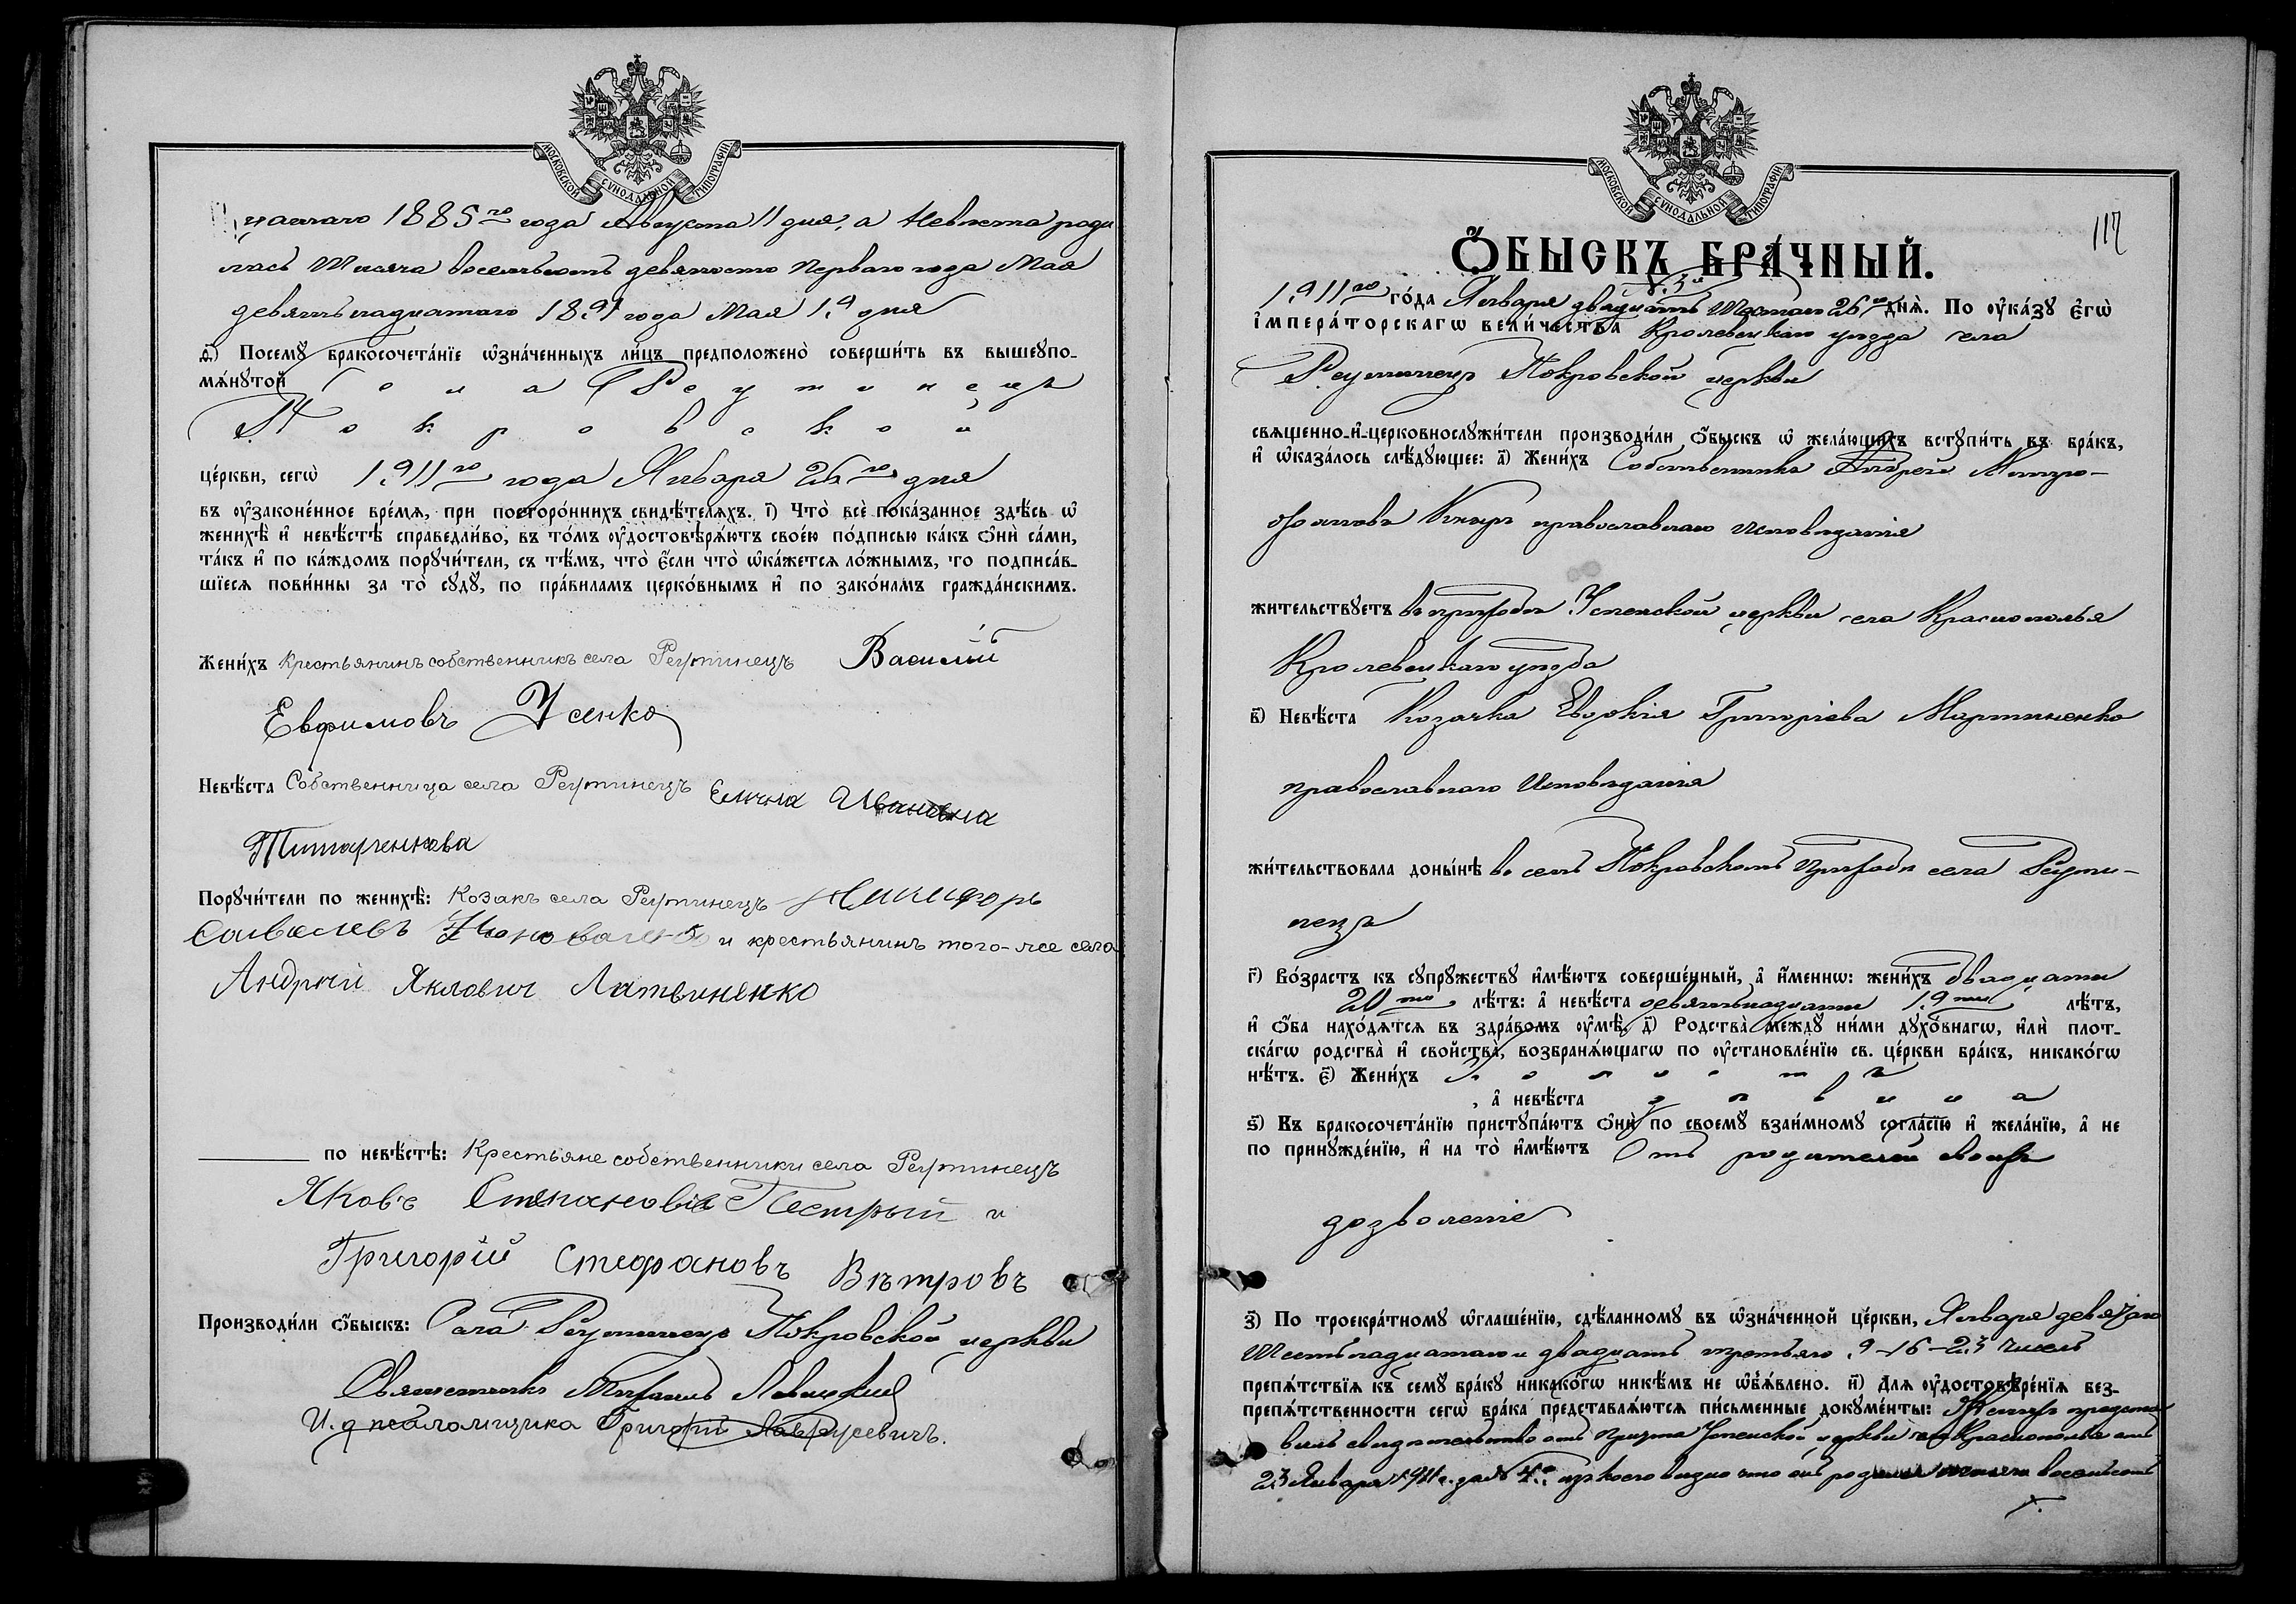 МОСКОВСКОЙ СѴНОДАЛЬНОЙ ТИПОГРАФІИ
цатаго 1885го года Августа 11 дня, а невѣста роди
лась тысяча восемьсотъ девяносто перваго года Мая
девятнадцатаго 1891 года Мая 19 дня
ѳ҃) Посемꙋ̀ бракосочета́нїе ѡ҆зна́ченныхъ ли́цъ предположено̀ соверши́ть въ вышеꙋпо-
мѧ́нꙋтой Села Реутинецъ
Покровской
це́ркви, сегѡ̀ 1911го года Января 26го дня
въ ᲂу҆законе́нное вре́мѧ, при посторо́ннихъ свидѣ́телѧхъ. і҃) Что̀ всѐ пока́занное здѣ́сь ѡ҆
женихѣ̀ и҆ невѣ́стѣ справедли́во, въ то́мъ ᲂу҆достовѣрѧ́ютъ свое́ю по́дписью ка́къ ѻ҆нѝ са́ми,
та́къ и҆ по ка́ждомъ порꙋчи́тели, съ тѣ́мъ, что̀ є҆́сли что̀ ѡ҆ка́жетсѧ ло́жнымъ, то подписа́в-
шїесѧ пови́нны за то̀ сꙋдꙋ̀, по пра́виламъ церко́внымъ и҆ по зако́намъ гражда́нскимъ.
Жени́хъ Крестьянинъ собственникъ села Реутинецъ Василій
Евфимовъ Усенко
Невѣ́ста Собственница села Реутинецъ Елена Ивановна
Титарченкова
Порꙋчи́тели по женихѣ̀: Козакъ села Реутинецъ Никифоръ
Савелевъ и крестьянинъ того-же села
Андрей Яклович Литвиненко
по невѣ́стѣ: Крестьяне собственники села Реутинецъ
Яковъ Степановъ Пестрый и
Григорій Стефановъ Вѣтровъ
Производи́ли ѻ҆́быскъ: Села Реутинецъ Покровской церкви
Священникъ Михаилъ Левицкій
И. д псаломщика Григорій Лаврусевичъ.
МОСКОВСКОЙ СѴНОДАЛЬНОЙ ТИПОГРАФІИ
117
Ѻ҆́БЫСКЪ БРА́ЧНЫЙ.
№ 5й
1911го го́да Января двадцать шестого 26го дня̀. По ᲂу҆ка́зꙋ є҆гѡ̀
і҆мпера́торскагѡ вели́чества Кролевецкаго уѣзда села
Реутинецъ Покровской церкви
священно-и҆-церковнослꙋжи́тели производи́ли ѻ҆́быскъ ѡ҆ жела́ющихъ встꙋпи́ть въ бра́къ,
и҆ ѡ҆каза́лось слѣ́дꙋющее: а҃) Жени́хъ Собственникъ Андрей Митро-
фановъ православнаго исповѣданія
жи́тельствꙋетъ въ приходѣ Успенской церкви села Краснополья
Кролевецкаго уѣзда
в҃) Невѣ́ста Козачка Евдокія Григоріева Мартиненко
православнаго исповѣданія
жи́тельствовала доны́нѣ въ семъ Покровскомъ приходѣ села Реути-
нецъ
г҃) Во́зрастъ къ сꙋпрꙋ́жествꙋ и҆мѣ́ютъ соверше́нный, а҆ и҆́меннѡ: жени́хъ двадцати
20ти лѣ́тъ: а҆ невѣ́ста девятнадцати 19ти лѣ́тъ,
и҆ ѻ҆́ба нахо́дѧтсѧ въ здра́вомъ ᲂу҆мѣ̀. д҃) Родства̀ междꙋ̀ ни́ми дꙋхо́внагѡ, и҆лѝ плот-
ска́гѡ родства̀ и҆ сво́йства̀, возбранѧ́ющагѡ по ᲂу҆становле́нїю св. це́ркви бра́къ, никако́гѡ
нѣ́тъ. є҃) Жени́хъ холостъ
, а҆ невѣ́ста дѣвица
ѕ҃) Въ бракосочета́нїю пристꙋпа́ютъ ѻ҆нѝ по своемꙋ̀ взаи́мномꙋ согла́сїю и҆ жела́нїю, а҆ не
по принꙋжде́нїю, и҆ на то̀ и҆мѣ́ютъ Отъ родителей своихъ
дозволеніе
з҃) По троекра́тномꙋ ѡ҆глаше́нїю, сдѣ́ланномꙋ въ ѡ҆зна́ченной це́ркви, Января девятаго
шестнадцатаго и двадцать третьяго 9-16-23 чиселъ
препѧ́тствїѧ къ семꙋ̀ бра́кꙋ никако́гѡ никѣ́мъ не ѡ҆б̾ѧ́влено. и҃) Длѧ ᲂу҆достовѣре́нїѧ без-
препѧ́тственности сегѡ̀ бра́ка представлѧ́ютсѧ пи́сьменные докꙋме́нты: Женихъ предста-
вилъ свидѣтельство отъ причта Успенской церкви села Краснополья отъ
23 Января 1911 г. за № 4м изъ коего видно что онъ родился тысяча восемьсотъ